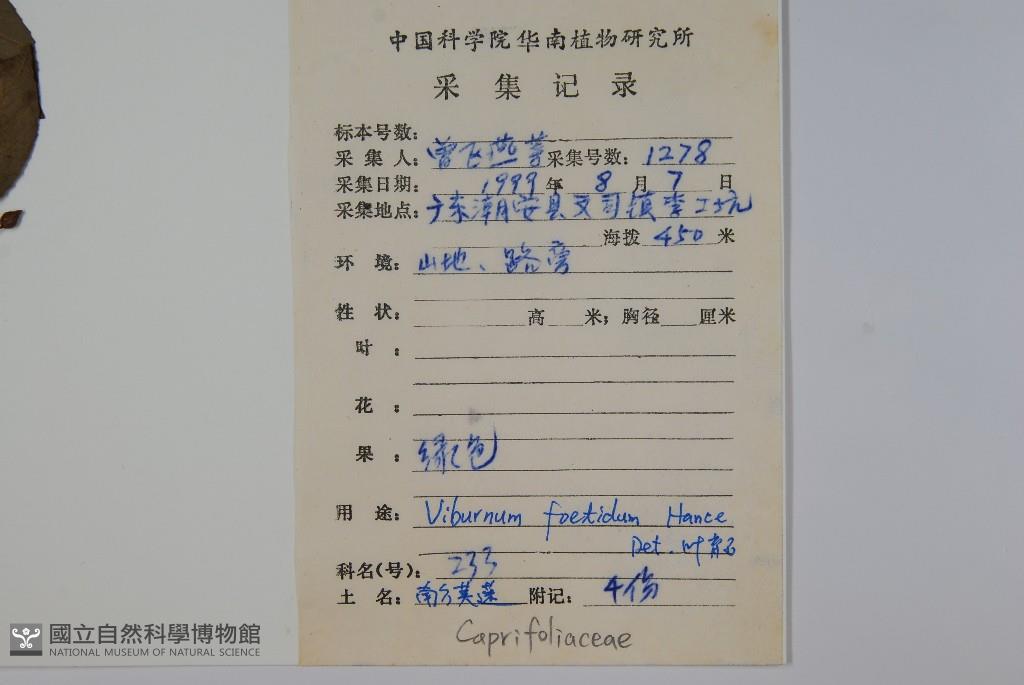 中国科学院华南植物研究所
采集记录
标本号数:
采集人: 曾飞燕等 采集号数: 1278
采集日期: 1999 年 8 月 7 日
采集地点: 广东潮安县文祠镇李工坑
海拨 450 米
环境: 山地、路旁
性状: 高 米; 胸径 厘米
叶:
花:
果: 绿色
用途: Viburnum foetidum Hance
Det. 叶育石
科名(号): 233
土名: 南方荚蒾 附记: 4份
Caprifoliaceae
國立自然科學博物館
NATIONAL MUSEUM OF NATURAL SCIENCE